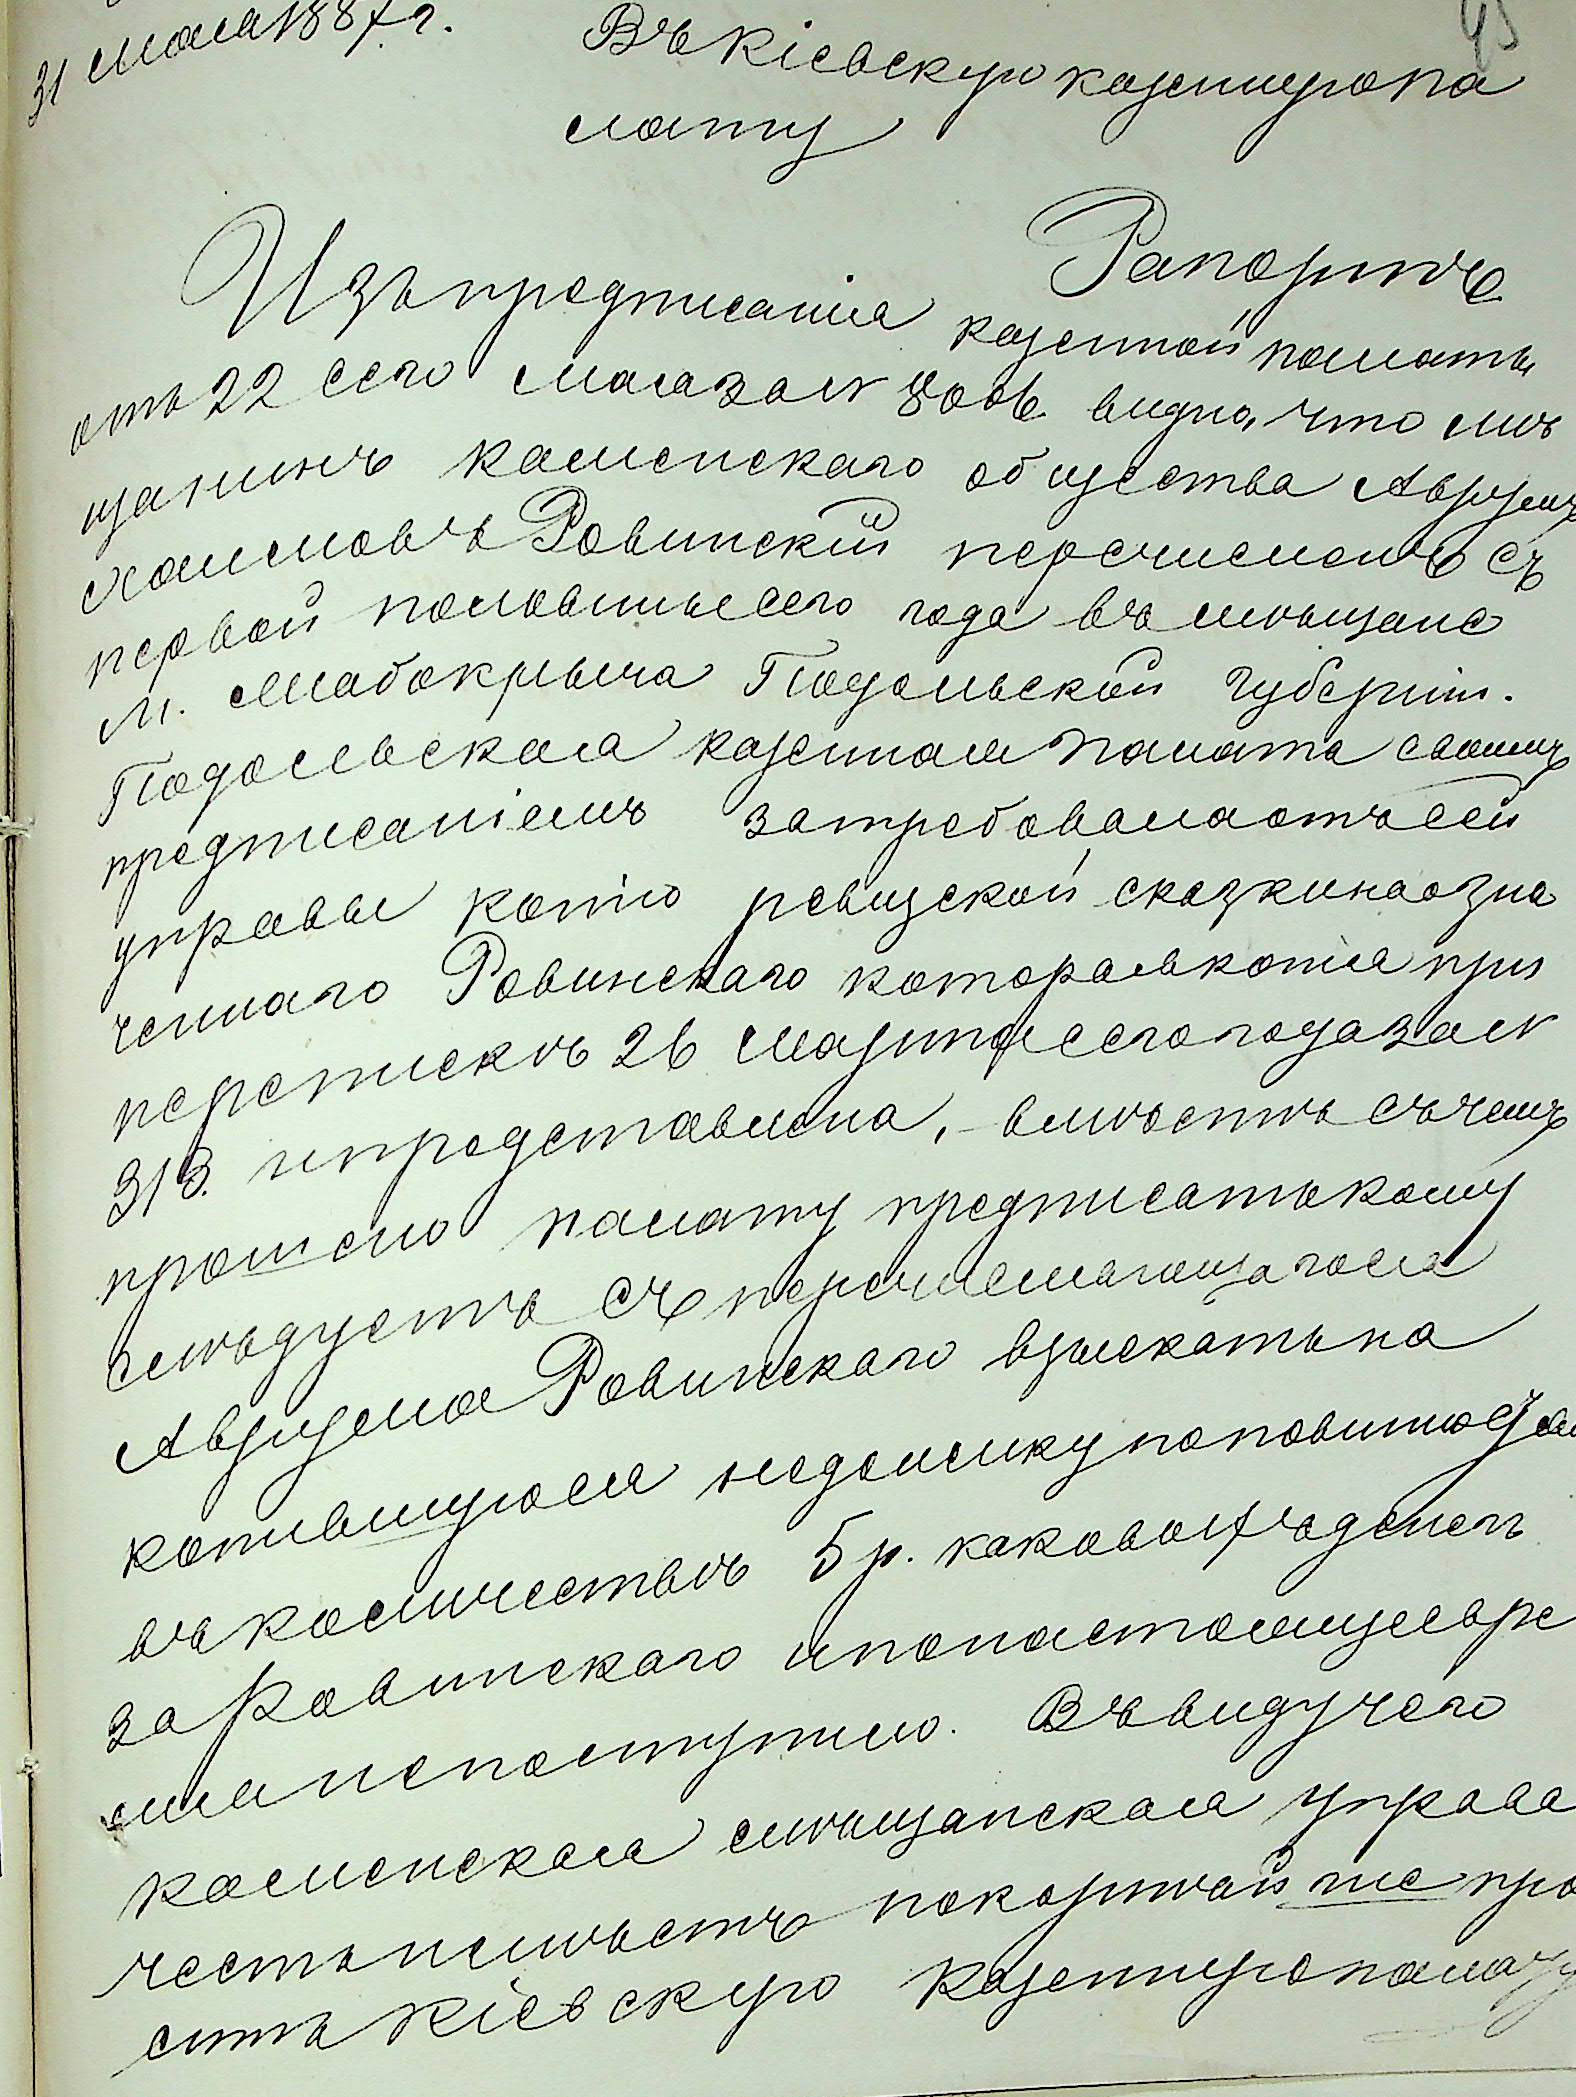 31 Мая 1887 г.
45
Въ Кіевскую казенную па
лату
Рапортъ
Изъ предписанія казенной палаты
отъ 22 сего мая за № 8006 видно, что мѣ
щанинъ каменскаго общества Аврумъ
Хаимовъ Ровинскій перечисленъ съ
первой половины сего года въ мѣщане
м. Мабокрыча Подольской губерніи.
Подольская казенная палата своимъ
предписаніемъ затребовала отъ сей
управы копію ревизской сказки на озна
ченнаго Ровинскаго которая копія при
перепискѣ 26 марта сего года за №
313. и представлена, вмѣстѣ съ чемъ
прошено палату предписать кому
слѣдуетъ съ перечисляющагося
Аврума Ровинскаго взыскать на
копившуюся недоимку по повинностям
въ количествѣ 5 р. каковых денегъ
за Ровинскаго и по настоящее вре
мя непоступило. Въ виду чего
каменская мѣщанская управа
честь имѣетъ покорнѣйше про
сить Кіевскую казенную палату